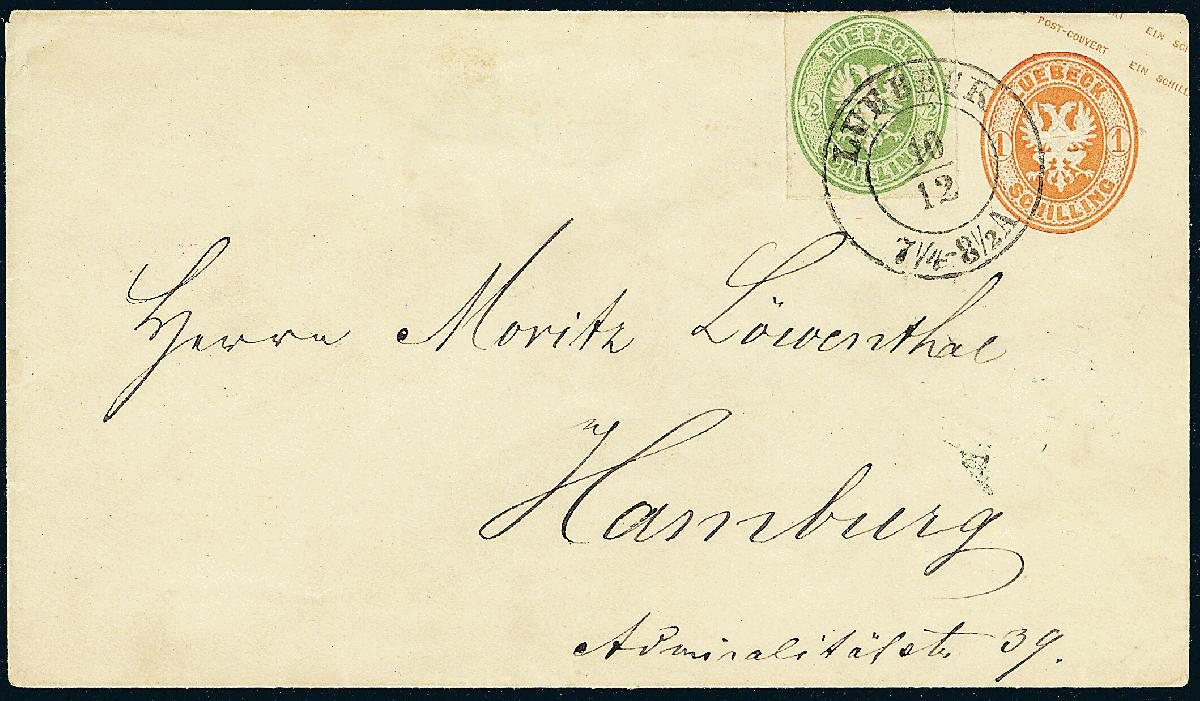 POST-COUVERT EIN SCHILL
LUEBECK
½ ½
SCHILLING
LUEBECK
1 1
SCHILLING
LUEBECK
10
12
7¼-8½A
Herrn Moritz Löwenthal
Hamburg
Admiralitätstr 39.